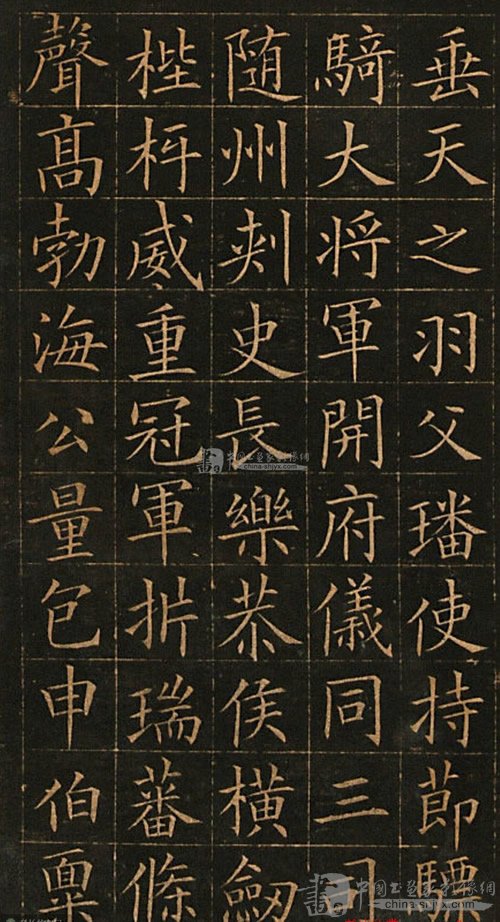 垂天之羽父璠使持節驃
騎大将軍開府儀同三司
随州刾史長樂恭侯横劔
梐枑威重冠軍折瑞蕃條
聲高勃海公量包申伯稟
china-shjyx.com
china-shjyx.com